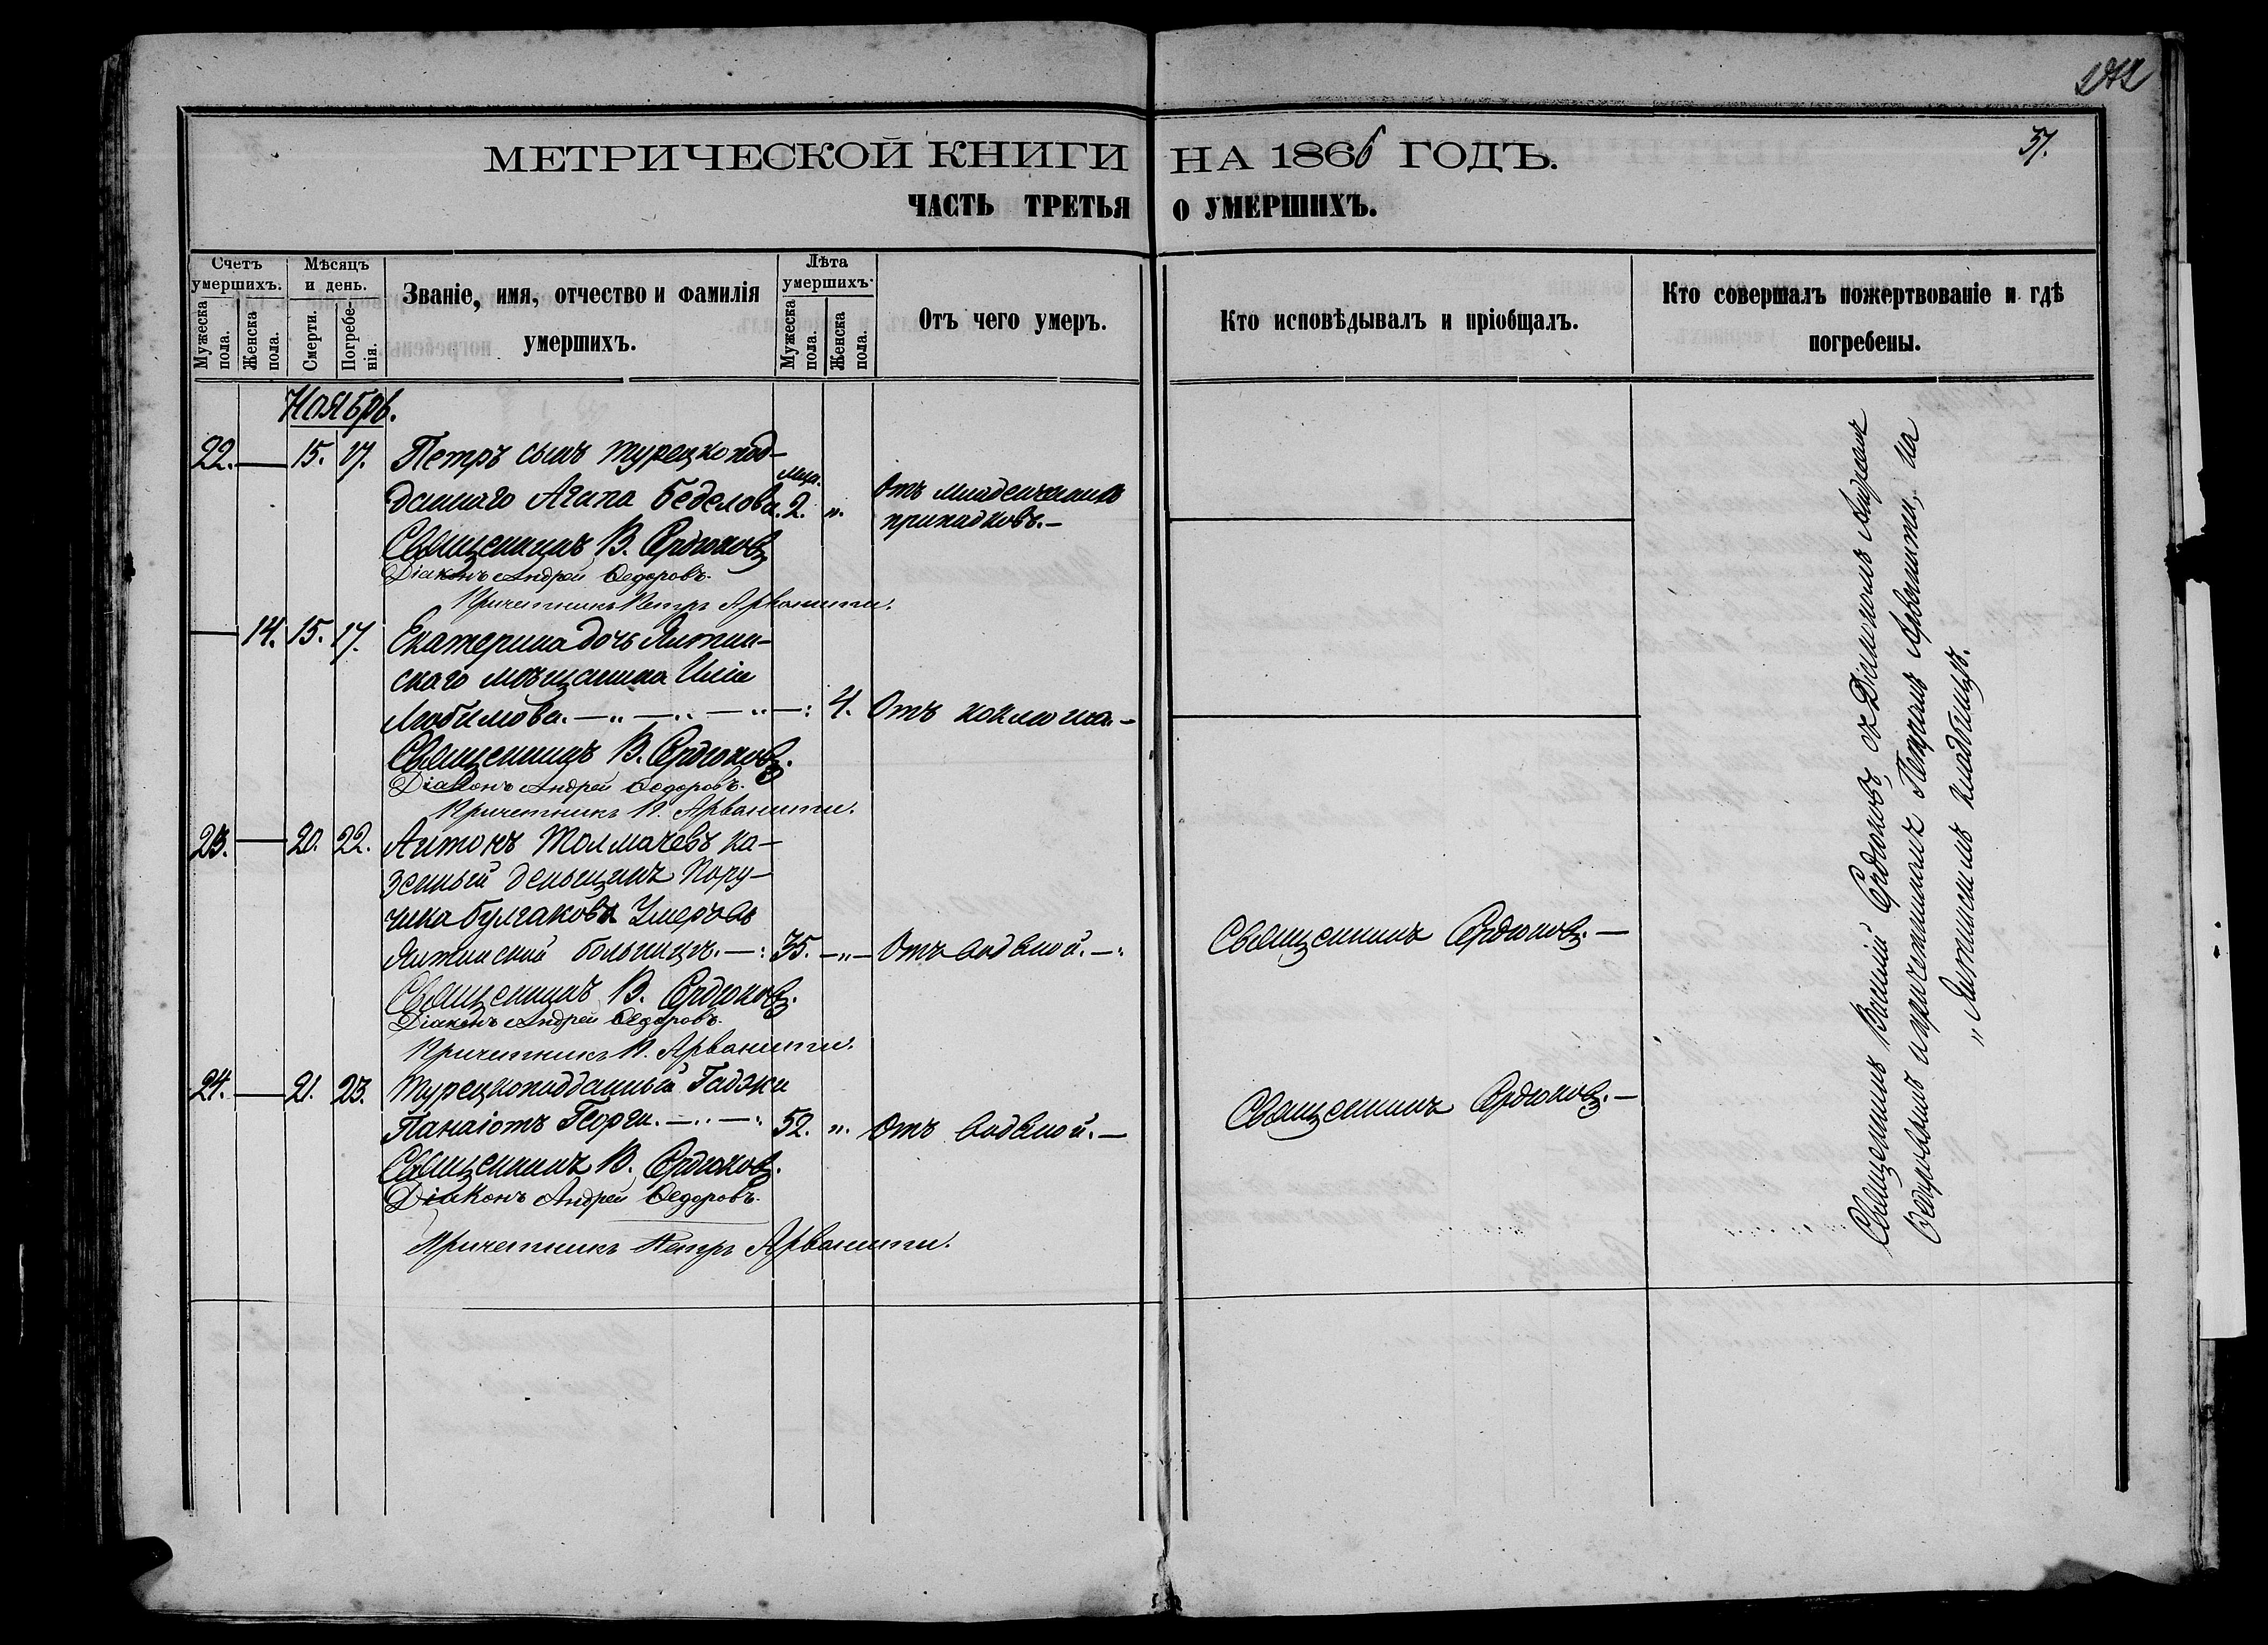 37.
МЕТРИЧЕСКОЙ КНИГИ НА 1866 ГОДЪ.
ЧАСТЬ ТРЕТЬЯ О УМЕРШИХЪ.
Счетъ умершихъ.
Мужеска пола.
Женска пола.
Мѣсяцъ и день.
Смерти.
Погребенія.
Званіе, имя, отчество и фамилія умершихъ.
Лѣта умершихъ.
Мужеска пола.
Женска пола.
Отъ чего умеръ.
Кто исповѣдывалъ и пріобщалъ.
Кто совершалъ пожертвованіе и гдѣ погребены.
Ноябрь.
22. — 15. 17. Петръ сынъ турецкопод-
даннаго Агапа Беделова. 2. „ Отъ младенческихъ
припадковъ. —
Священникъ В. Сердюковъ
Діаконъ Андрей Ѳедоровъ.
Причетникъ Петръ Арванити.
— 14. 15. 17. Екатерина дочь Ялтин-
скаго мѣщанина Иліи
Любимова. — „ — „ — „ — : 4. Отъ коклюша. —
Священникъ В. Сердюковъ.
Діаконъ Андрей Ѳедоровъ.
Причетникъ П. Арванити.
23. — 20. 22. Антонъ Толмачевъ ка-
зенный деньщикъ Пору-
чика Булгакова Умеръ въ
Ялтинской больницѣ. — : 35. — „ — Отъ водяной. — : Священникъ Сердюковъ. —
Священникъ В. Сердюковъ.
Діаконъ Андрей Ѳедоровъ.
Причетникъ П. Арванити.
24. — 21. 23. Турецкоподданный Гаджи
Панаіотъ Георги. — „ — : 52. „ Отъ водяной. — Священникъ Сердюковъ. —
Священникъ В. Сердюковъ.
Діаконъ Андрей Ѳедоровъ.
Причетникъ Петръ Арванити.
Священникъ Василій Сердюковъ съ Діакономъ Андреемъ
Ѳедоровымъ и причетникомъ Петромъ Арванити, на
„Ялтинскомъ кладбищѣ.